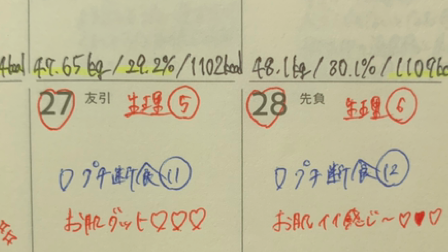 47.65kg/29.2%/1102kcal
27 友引 生理⑤
プチ断食⑪
お肌グット♡♡♡
48.1kg/30.1%/1109kcal
28 先負 生理⑥
プチ断食⑫
お肌イイ感じ〜♡♥♡